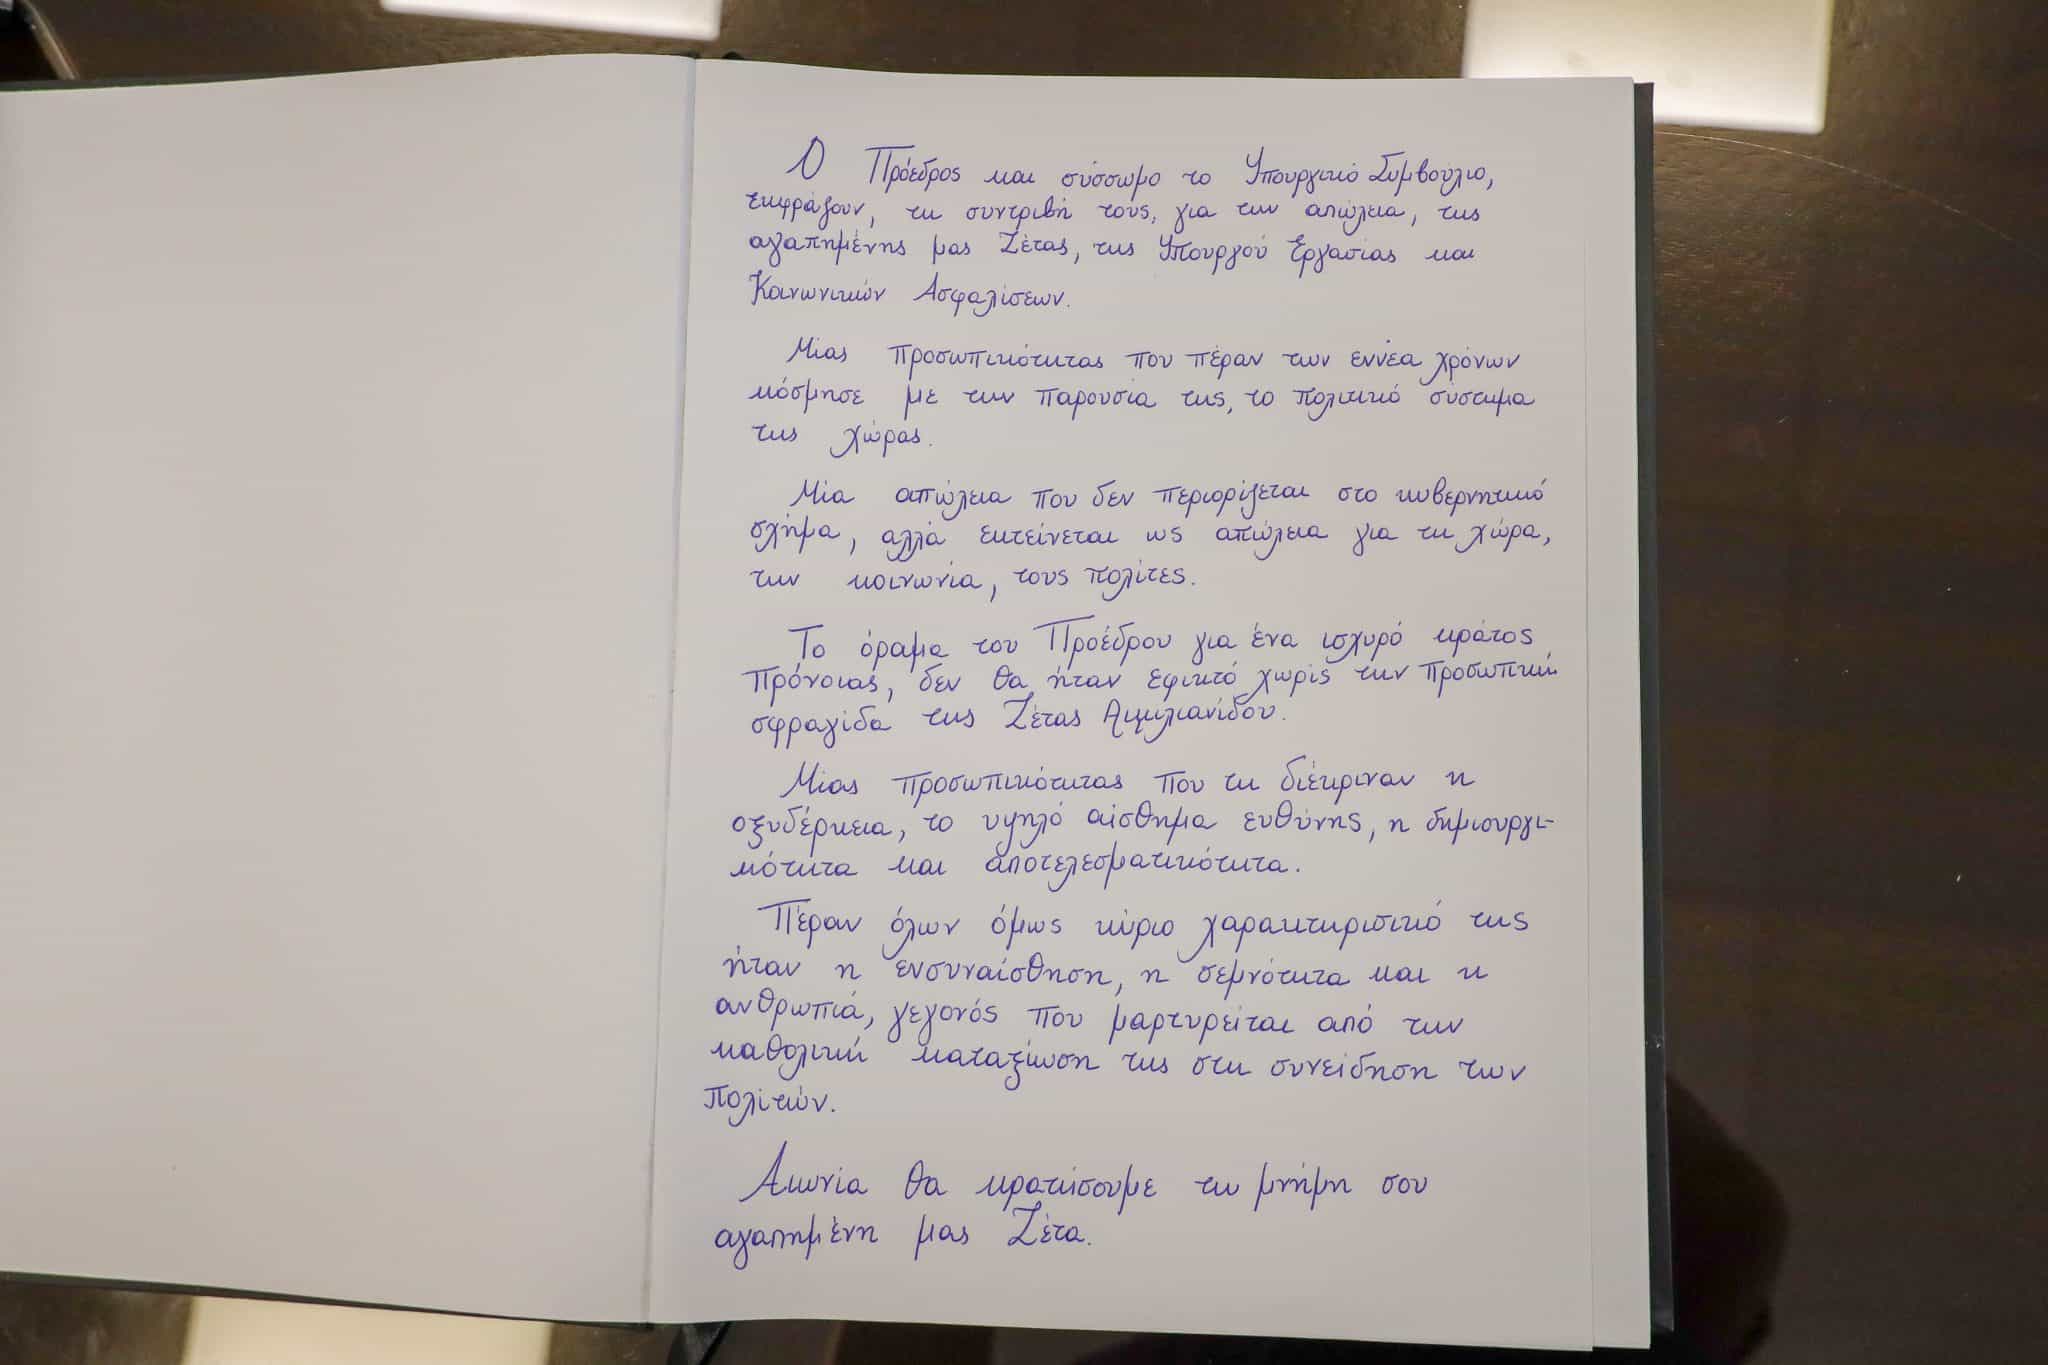 Ο Πρόεδρος και σύσσωμο το Υπουργικό Συμβούλιο,
εκφράζουν, τη συντριβή τους, για την απώλεια, της
αγαπημένης μας Ζέτας, της Υπουργού Εργασίας και
Κοινωνικών Ασφαλίσεων.
Μιας προσωπικότητας που πέραν των εννέα χρόνων
κόσμησε με την παρουσία της, το πολιτικό σύστημα
της χώρας.
Μία απώλεια που δεν περιορίζεται στο κυβερνητικό
σχήμα, αλλά εκτείνεται ως απώλεια για τη χώρα,
την κοινωνία, τους πολίτες.
Το όραμα του Προέδρου για ένα ισχυρό κράτος
πρόνοιας, δεν θα ήταν εφικτό χωρίς την προσωπική
σφραγίδα της Ζέτας Αιμιλιανίδου.
Μιας προσωπικότητας που τη διέκριναν η
οξυδέρκεια, το υψηλό αίσθημα ευθύνης, η δημιουργι-
κότητα και αποτελεσματικότητα.
Πέραν όλων όμως κύριο χαρακτηριστικό της
ήταν η ενσυναίσθηση, η σεμνότητα και η
ανθρωπιά, γεγονός που μαρτυρείται από την
καθολική καταξίωση της στη συνείδηση των
πολιτών.
Αιωνία θα κρατήσουμε τη μνήμη σου
αγαπημένη μας Ζέτα.